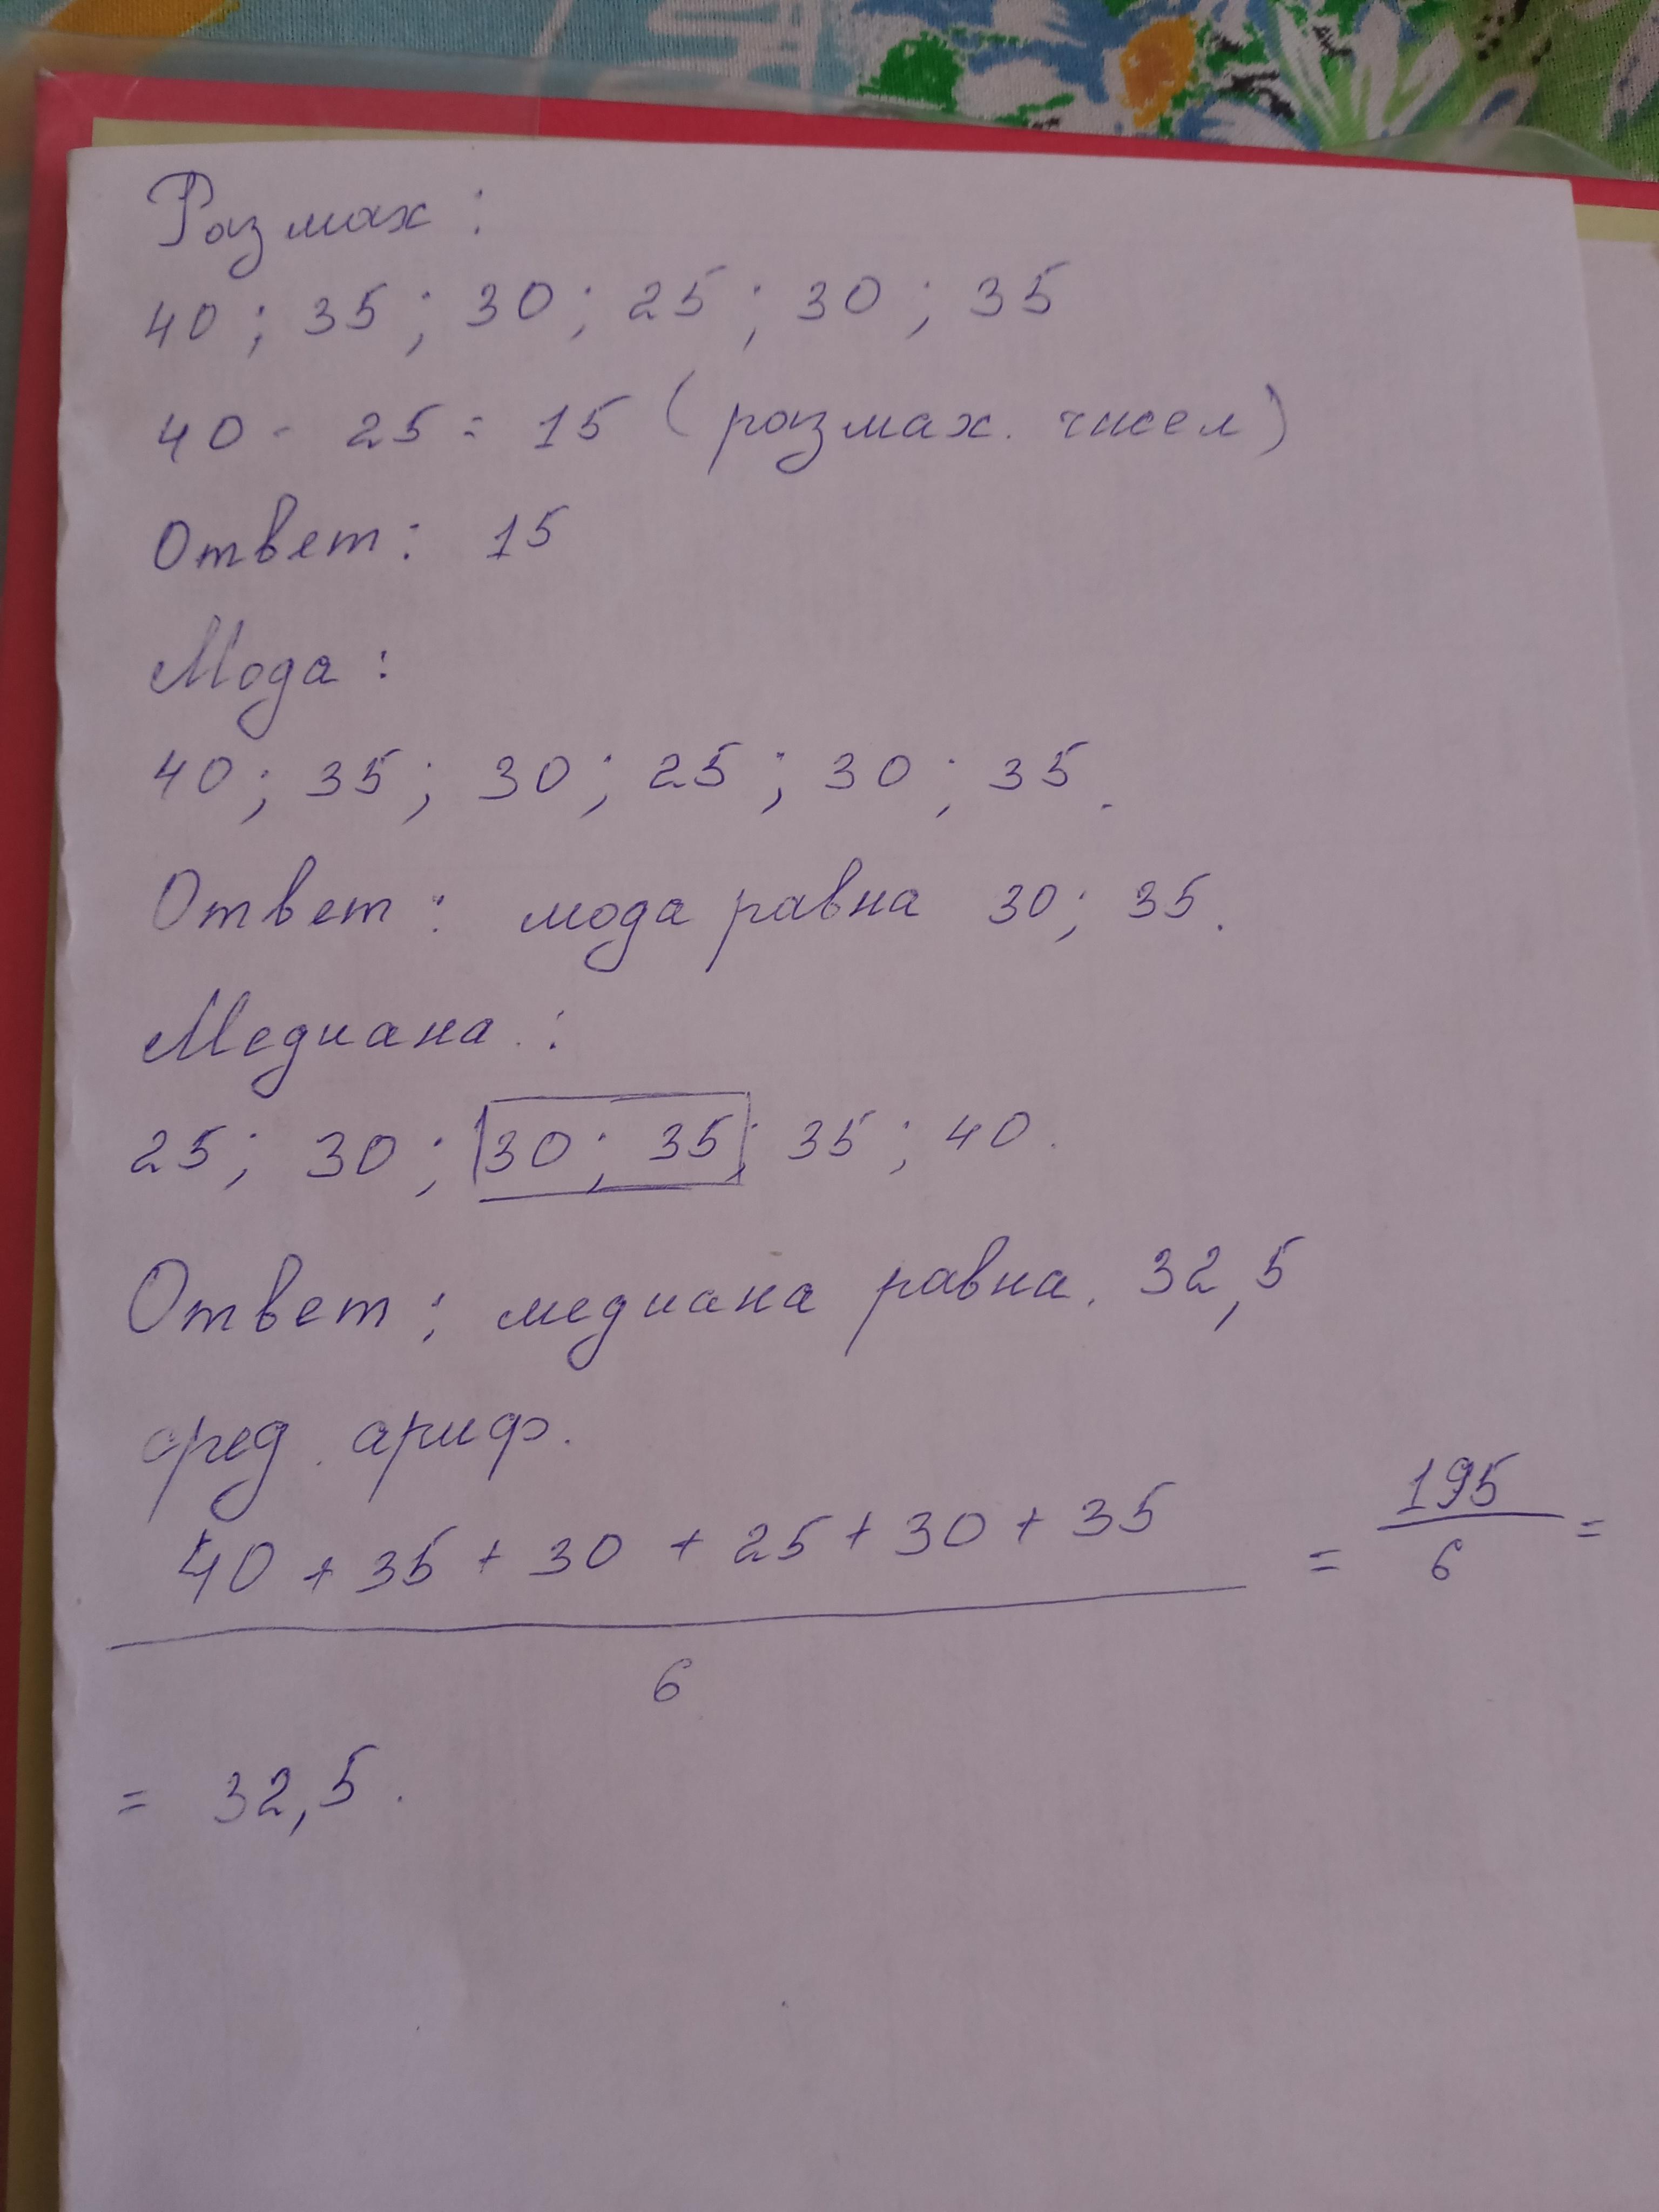 Размах:
40; 35; 30; 25; 30; 35
40 - 25 = 15 (размах. чисел)
Ответ: 15
Мода:
40; 35; 30; 25; 30; 35.
Ответ: мода равна 30; 35.
Медиана.:
25; 30; 30; 35; 35; 40.
Ответ: медиана равна. 32,5
сред. ариф.
40 + 35 + 30 + 25 + 30 + 35 = 195 =
6 6
= 32,5.